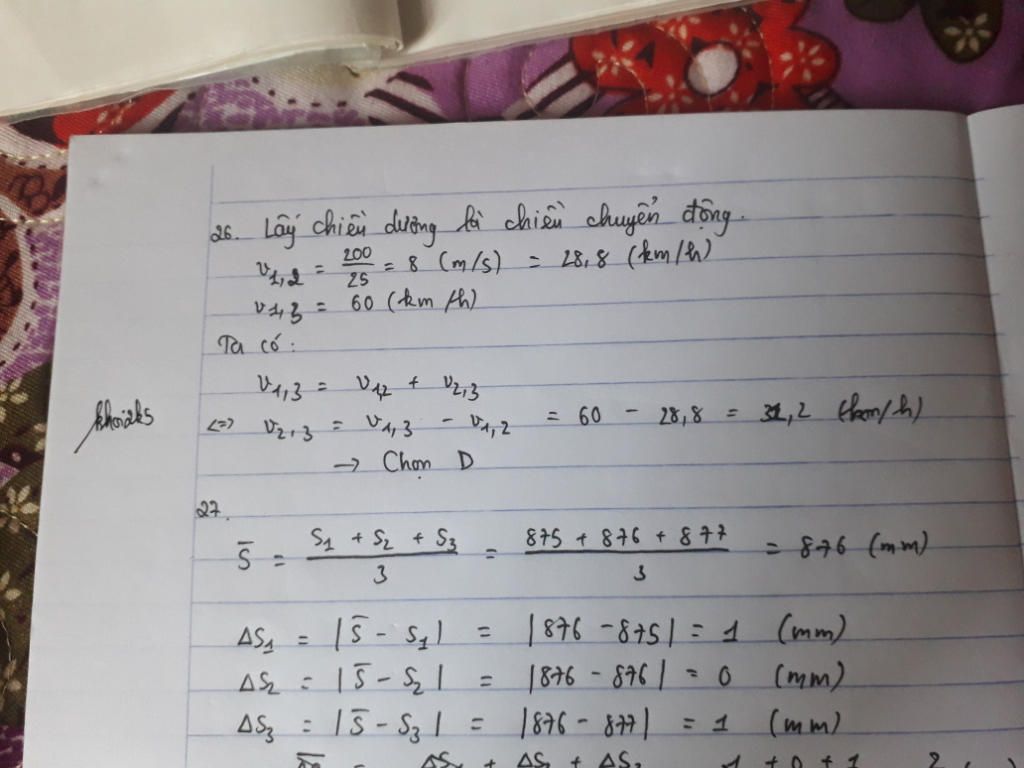 26. Lấy chiều dương là chiều chuyển động.
v1,2 = 200/25 = 8 (m/s) = 28,8 (km/h)
v1,3 = 60 (km/h)
Ta có:
v1,3 = v1,2 + v2,3
<=> v2,3 = v1,3 - v1,2 = 60 - 28,8 = 31,2 (km/h)
khoi2k5
→ Chọn D
27.
S̄ = (S1 + S2 + S3)/3 = (875 + 876 + 877)/3 = 876 (mm)
ΔS1 = |S̄ - S1| = |876 - 875| = 1 (mm)
ΔS2 = |S̄ - S2| = |876 - 876| = 0 (mm)
ΔS3 = |S̄ - S3| = |876 - 877| = 1 (mm)
= ΔS1 + ΔS2 + ΔS3 1 + 0 + 1 2